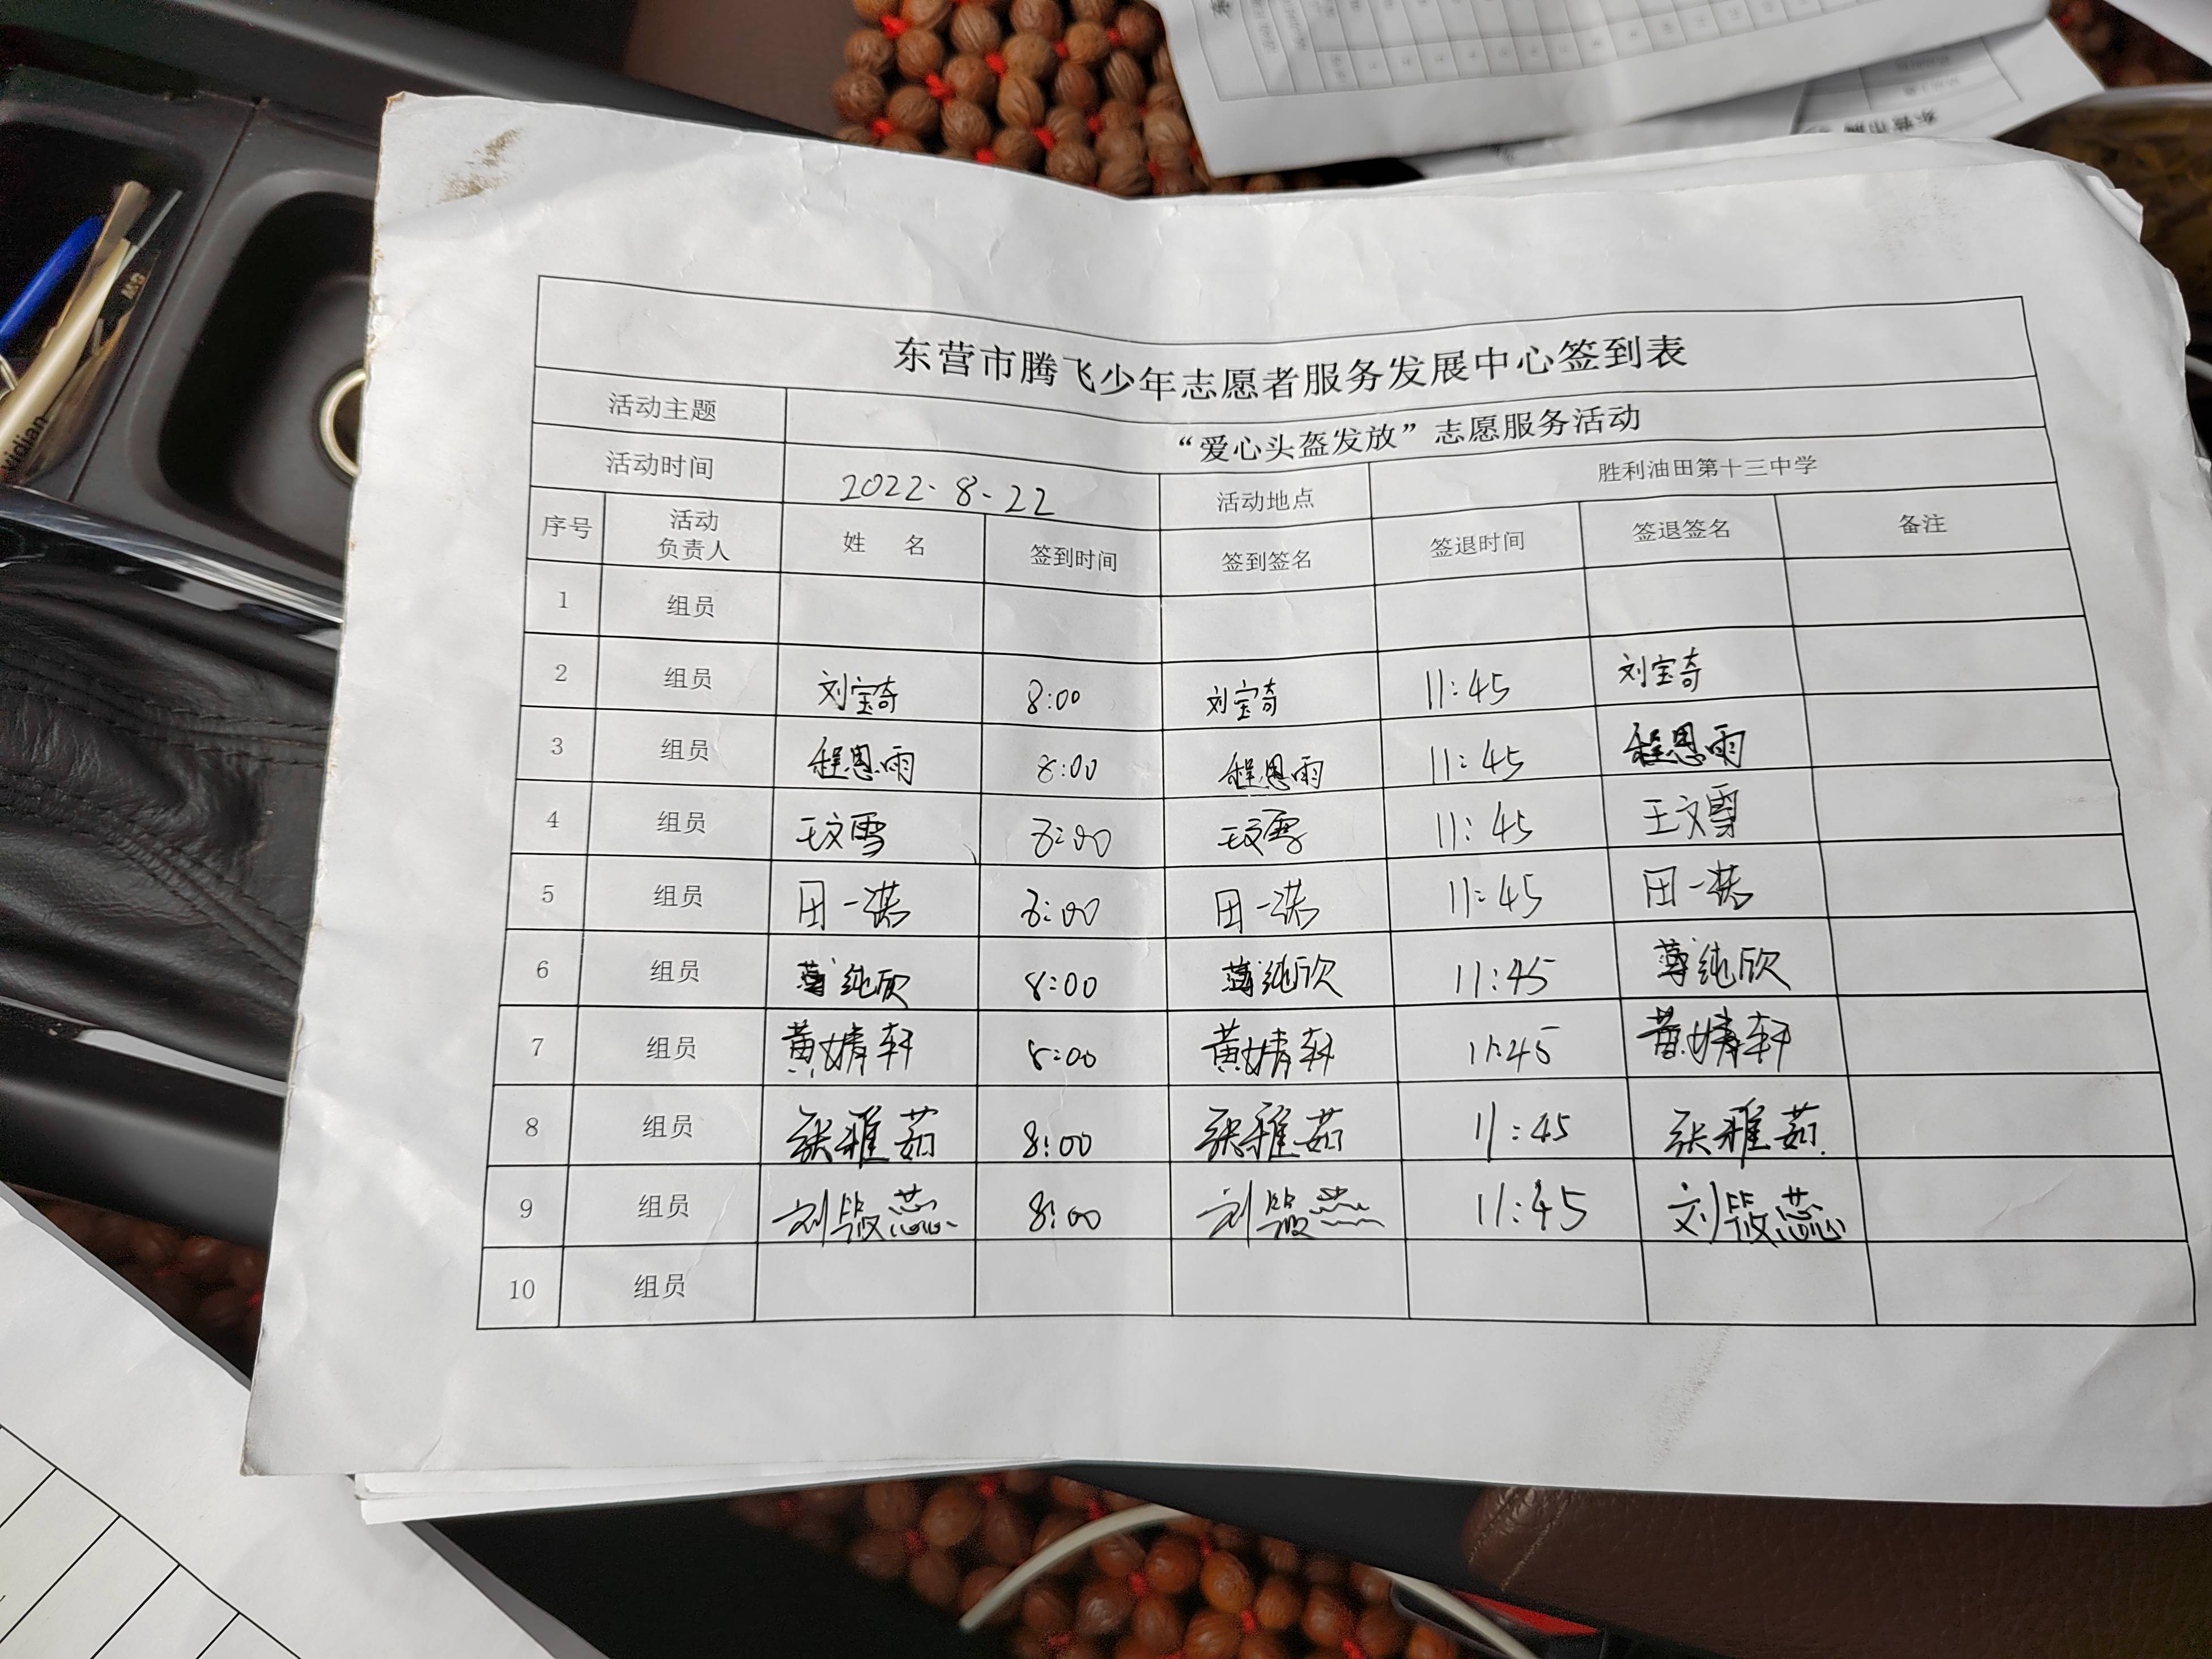 东营市腾飞少年志愿者服务发展中心签到表
活动主题 “爱心头盔发放”志愿服务活动
活动时间 2022-8-22 活动地点 胜利油田第十三中学
序号 活动负责人 姓 名 签到时间 签到签名 签退时间 签退签名 备注
1 组员
2 组员 刘宝奇 8:00 刘宝奇 11:45 刘宝奇
3 组员 程恩雨 8:00 程恩雨 11:45 程恩雨
4 组员 王文雪 8:00 王文雪 11:45 王文雪
5 组员 田一诺 8:00 田一诺 11:45 田一诺
6 组员 薄纯欣 8:00 薄纯欣 11:45 薄纯欣
7 组员 黄婧轩 8:00 黄婧轩 11:45 黄婧轩
8 组员 张雅茹 8:00 张雅茹 11:45 张雅茹
9 组员 8:00 11:45
10 组员
vidian